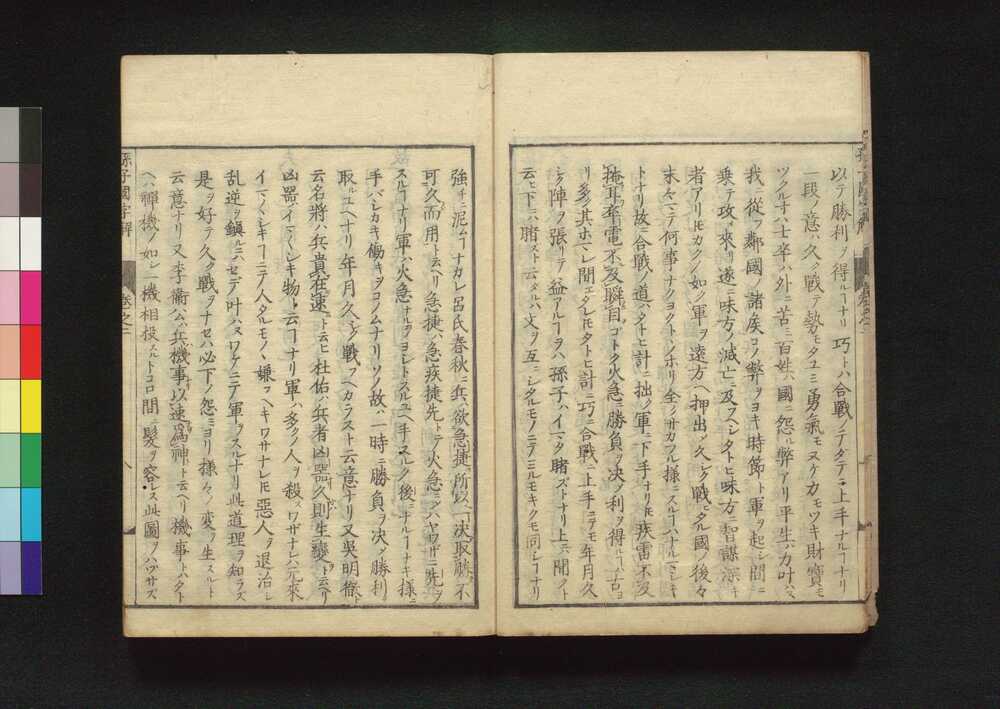 以テ勝利ヲ得ルヿナリ巧トハ合戰ノテダテニ上手ナルヿナリ
一段ノ意ハ久ク戰テ勢モタユミ勇氣モヌケ力モツキ財寶モ
ツクル寸ハ士卒ハ外ニ苦ミ百姓ハ國ニ怨ル弊アリ平生ハ力叶ハス
我ニ從フ鄰國ノ諸矦コノ弊ヲヨキ時節ト軍ヲ起シ間ニ
乗テ攻メ來リ遂ニ味方ノ滅亡ニ及フヘシタトヒ味方ニ智謀深キ
者アリ𪜈カクノ如ク軍ヲ遠方ヘ押出シ久ク戰ヒタル國ノ後々
末々マテ何事ナクヨクトヽノホリ全クサカフル樣ニスルヿハナルマシキ
トナリ故ニ合戰ノ道ハタトヒ計ニ拙ク軍ニ下手ナリ𪜈疾雷不及
掩耳迅電不及瞬目ゴトク火急ニ勝負ヲ決メ利ヲ得ルヿ古ヨ
リ多ク其ホマレ聞エタレ𪜈タトヒ計ニ巧ニ合戰ニ上手ニテモ年月久
シク陣ヲ張リテ益アルヿヲハ孫子ハイマタ睹ズトナリ上ニハ聞クト
云ヒ下ニハ睹スト云タルハ文ヲ互ニシタルモノニテミルモキクモ同シヿナリ
孫子國字解 卷之二
強チニ泥ムヿナカレ呂氏春秋ニ兵ハ欲急捷所以一決取勝不
可久而用トナリ急捷ハ急疾捷先トテ火急ニシハヤワザニ先ヲ
スルヿナリ軍ハ火急ナルヲヨシトスルユヘ手スルク後ニナルヿナキ樣ニ
手バシカキ働キヲコノムナリソノ故ハ一時ニ勝負ヲ決メ勝利
取ルユヘナリ年月久シク戰フヘカラスト云意ナリ又吳明徹
云名將ハ兵貴在速ト云ヒ杜佑ハ兵者凶器久則生變ト云ヘリ
凶器ハイマ〱シキ物ト云ヿナリ軍ハ多クノ人ヲ殺スワザナレハ元來
イマ〱シキヿニテ人タルモノヽ嫌フヘキワサナレ𪜈惡人ヲ退治シ
乱逆ヲ鎭ルニハセデ叶ハヌワケニテ軍ヲスルナリ此道理ヲ知ラズ
是ヲ好テ久ク戰ヲナセハ必下ノ怨ミヨリ樣々ノ変ヲ生スルト
云意ナリ又李衞公ハ兵機事以速爲神ト云ヘリ機事トハタト
ヘハ禪機ノ如シ一機相投スルトコロ間髮ヲ容レス此圖ヲハヅサズ